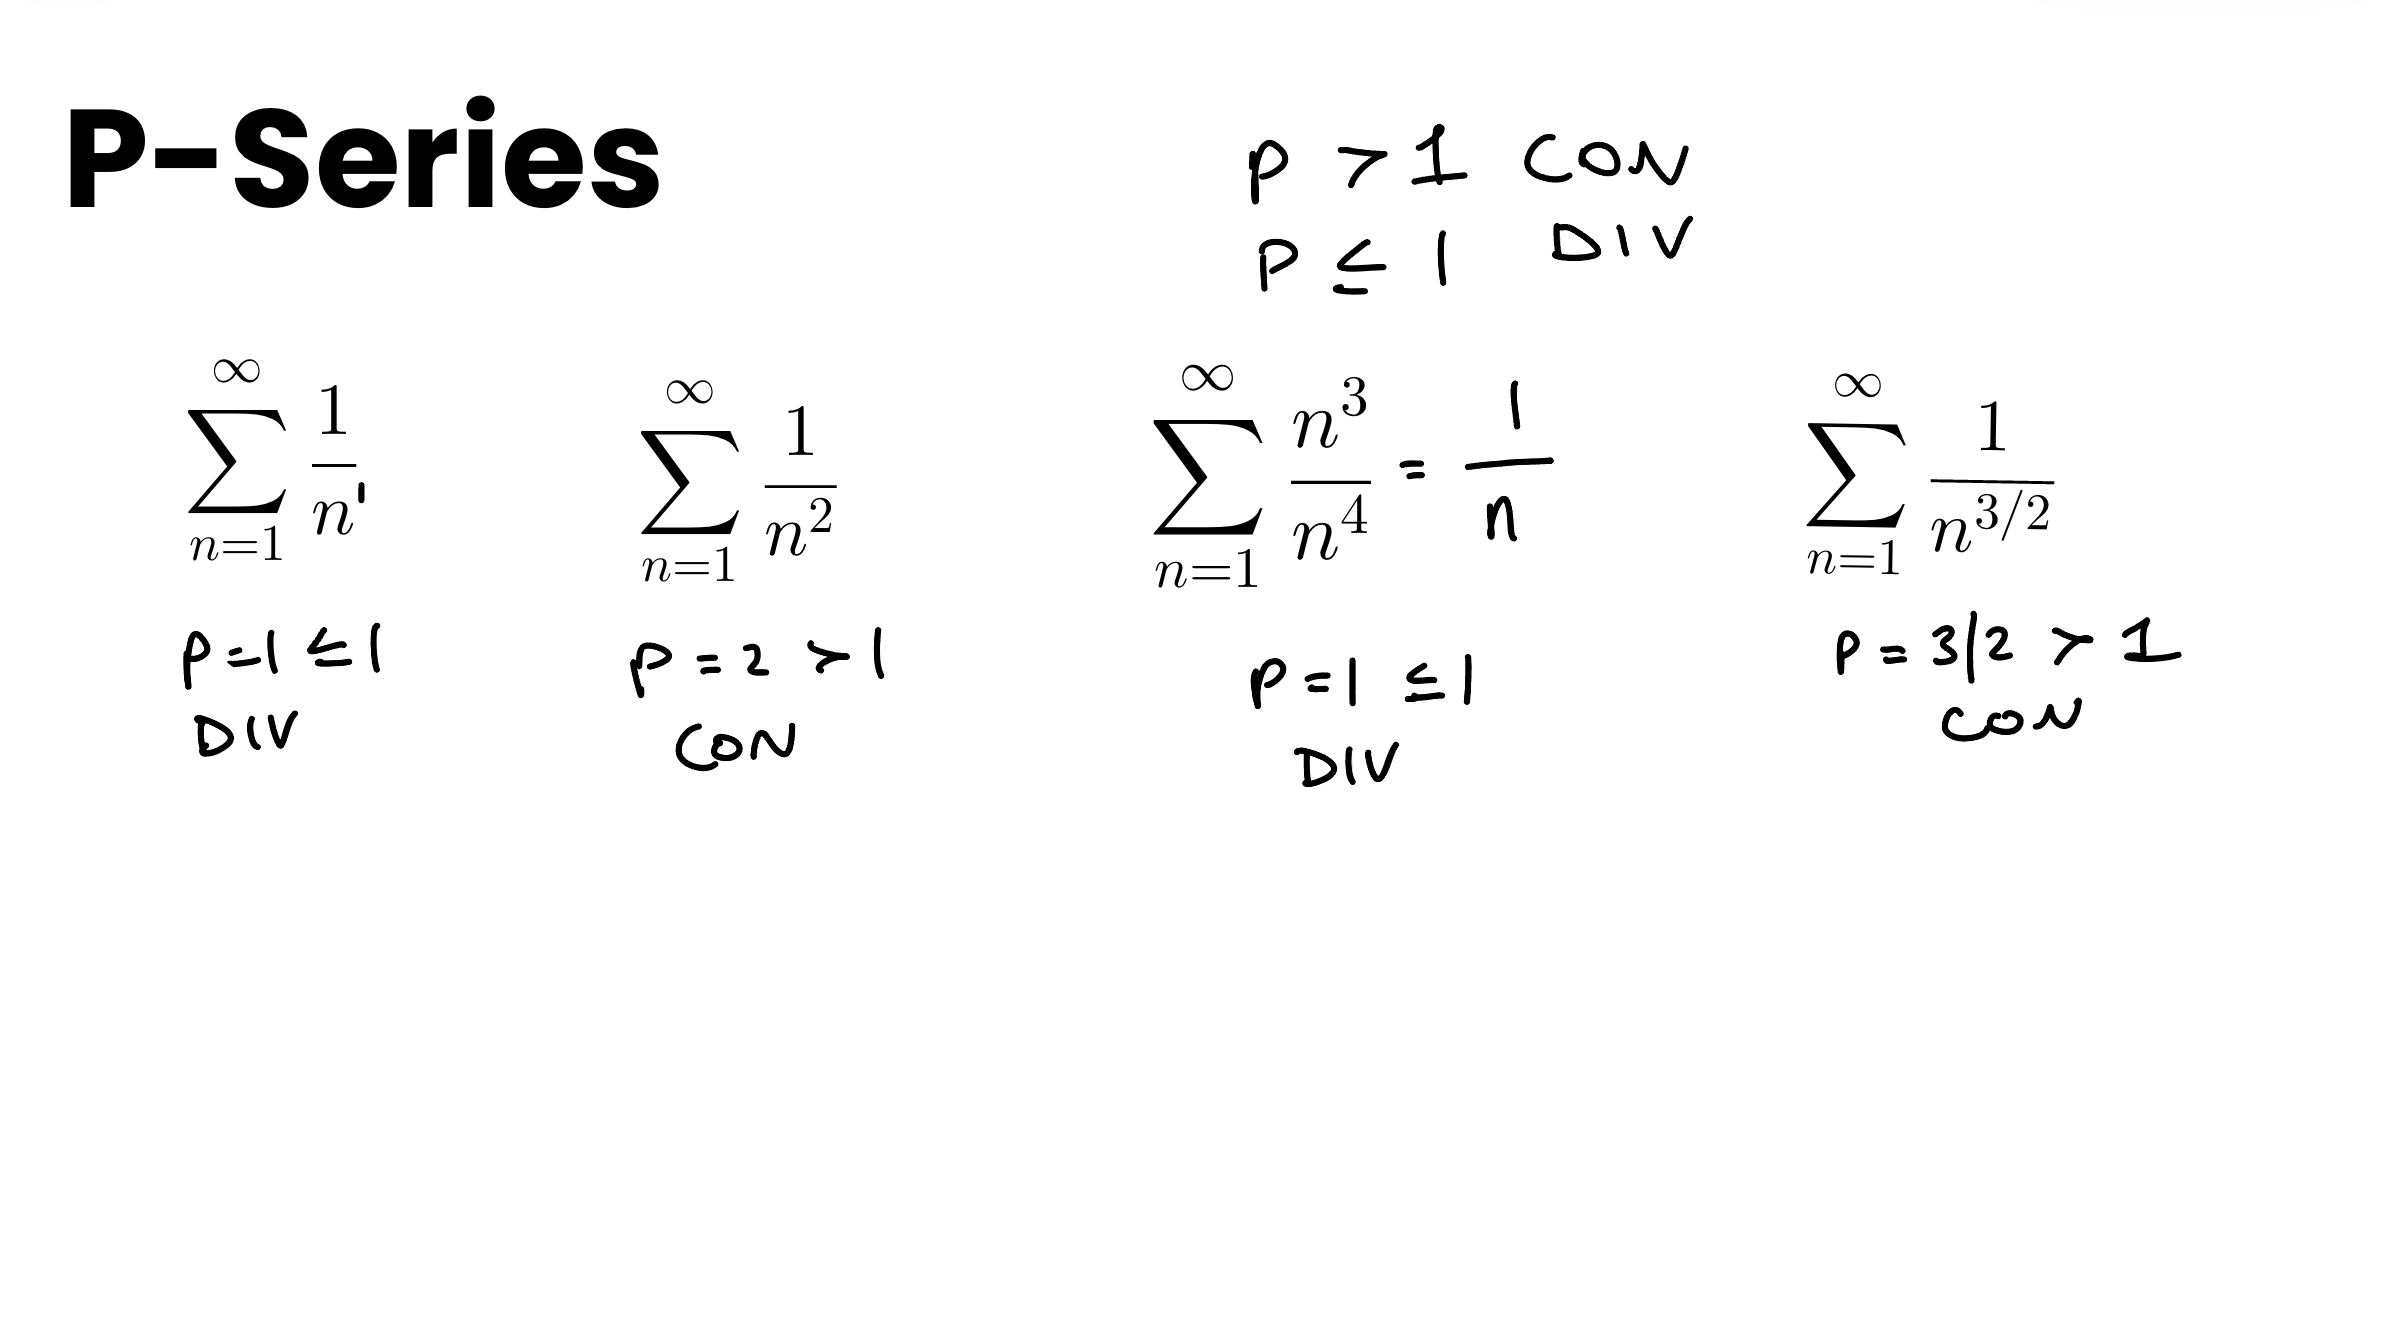 P-Series
p > 1 CON
p ≤ 1 DIV
\sum_{n=1}^{\infty} \frac{1}{n^1}
p = 1 ≤ 1
DIV
\sum_{n=1}^{\infty} \frac{1}{n^2}
p = 2 > 1
CON
\sum_{n=1}^{\infty} \frac{n^3}{n^4} = \frac{1}{n}
p = 1 ≤ 1
DIV
\sum_{n=1}^{\infty} \frac{1}{n^{3/2}}
p = 3/2 > 1
CON